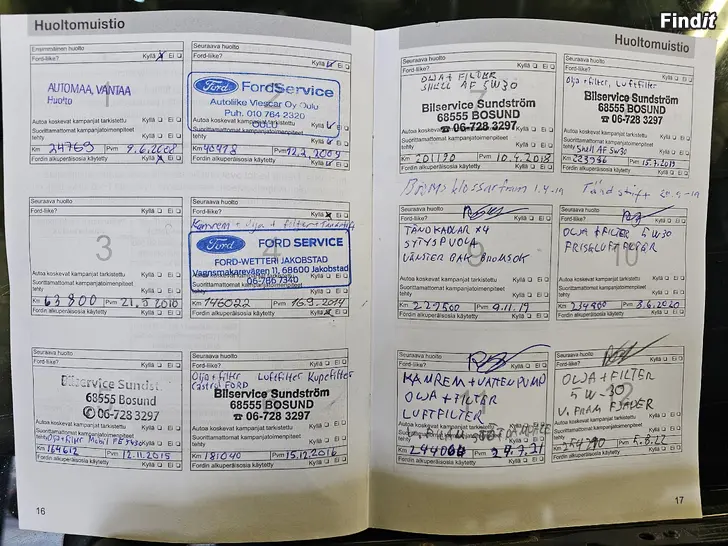 Findit
Huoltomuistio
Ensimmäinen huolto
Ford-liike? Kyllä Ei
AUTOMAA, VANTAA
Huolto
1
Autoa koskevat kampanjat tarkistettu Kyllä Ei
Suorittamattomat kampanjatoimenpiteet tehty Kyllä Ei
Km 24769 Pvm 9.6.2008
Fordin alkuperäisosia käytetty Kyllä Ei
Seuraava huolto
Ford-liike? Kyllä Ei
Ford FordService
Autoliike Viescar Oy Oulu
Puh. 010 764 2320
OULU
Autoa koskevat kampanjat tarkistettu Kyllä Ei
Suorittamattomat kampanjatoimenpiteet tehty Kyllä Ei
Km 40478 Pvm 12.2.2009
Fordin alkuperäisosia käytetty Kyllä Ei
Seuraava huolto
Ford-liike? Kyllä Ei
3
Autoa koskevat kampanjat tarkistettu Kyllä Ei
Suorittamattomat kampanjatoimenpiteet tehty Kyllä Ei
Km 63800 Pvm 21.5 2010
Fordin alkuperäisosia käytetty Kyllä Ei
Seuraava huolto
Ford-liike? Kyllä Ei
Kamrem + olja + filter +
Ford FORD SERVICE
FORD-WETTERI JAKOBSTAD
Vagnsmakarevägen 11, 68600 Jakobstad
06-786 7340
Suorittamattomat kampanjatoimenpiteet tehty Kyllä Ei
Km 146022 Pvm 16.9.2014
Fordin alkuperäisosia käytetty Kyllä Ei
Seuraava huolto
Ford-liike? Kyllä Ei
Bilservice Sundst.
68555 Bosund
✆ 06-728 3297
Autoa koskevat kampanjat tarkistettu Kyllä Ei
Suorittamattomat kampanjatoimenpiteet
Olja+filter Mobil
Km 164612 Pvm 12.11.2015
Fordin alkuperäisosia käytetty Kyllä Ei
Seuraava huolto
Ford-liike? Kyllä Ei
Olja + filter Luftfilter Kupefilter
Castrol FORD
Bilservice Sundström
68555 BOSUND
☎ 06-728 3297
Autoa koskevat kampanjat tarkistettu Kyllä Ei
Suorittamattomat kampanjatoimenpiteet tehty Kyllä Ei
Km 181040 Pvm 15.12.2016
Fordin alkuperäisosia käytetty Kyllä Ei
16
Huoltomuistio
Seuraava huolto
Ford-liike? Kyllä Ei
OLJA + FILTER
SHELL AF 5W30
Bilservice Sundström
68555 BOSUND
☎ 06-728 3297
Autoa koskevat kampanjat tarkistettu Kyllä Ei
Suorittamattomat kampanjatoimenpiteet tehty Kyllä Ei
Km 201190 Pvm 10.4.2018
Fordin alkuperäisosia käytetty Kyllä Ei
Seuraava huolto
Ford-liike? Kyllä Ei
Olja + filter, Luftfilter
Bilservice Sundström
68555 BOSUND
☎ 06-728 3297
Suorittamattomat kampanjatoimenpiteet
tehty Shell AF 5W30 Kyllä Ei
Km 223986 Pvm 15.7.2019
Fordin alkuperäisosia käytetty Kyllä Ei
Bromsklossar fram 1.4-19
Tändstift
Seuraava huolto
Ford-liike? Kyllä Ei
TÄNDKABLAR x4
SYTYSPUOLA
VÄNSTER BAK BROMSOK
9
Autoa koskevat kampanjat tarkistettu Kyllä Ei
Suorittamattomat kampanjatoimenpiteet tehty Kyllä Ei
Km 227500 Pvm 9.11.19
Fordin alkuperäisosia käytetty Kyllä Ei
Seuraava huolto
Ford-liike? Kyllä Ei
OLJA + FILTER 5W30
FRISKLUFTFILTER
10
Autoa koskevat kampanjat tarkistettu Kyllä Ei
Suorittamattomat kampanjatoimenpiteet tehty Kyllä Ei
Km 234800 Pvm 3.6.2020
Fordin alkuperäisosia käytetty Kyllä Ei
Seuraava huolto
Ford-liike? Kyllä Ei
KAMREM + VATTENPUMP
OLJA + FILTER
LUFTFILTER
Autoa koskevat kampanjat tarkistettu Kyllä Ei
Suorittamattomat kampanjatoimenpiteet tehty Kyllä Ei
Km Pvm
Fordin alkuperäisosia käytetty Kyllä Ei
Seuraava huolto
Ford-liike? Kyllä Ei
OLJA + FILTER
5W-30
V. FRAM FJÄDER
Autoa koskevat kampanjat tarkistettu Kyllä Ei
Suorittamattomat kampanjatoimenpiteet tehty Kyllä Ei
Km Pvm 5.8.22
Fordin alkuperäisosia käytetty Kyllä Ei
17